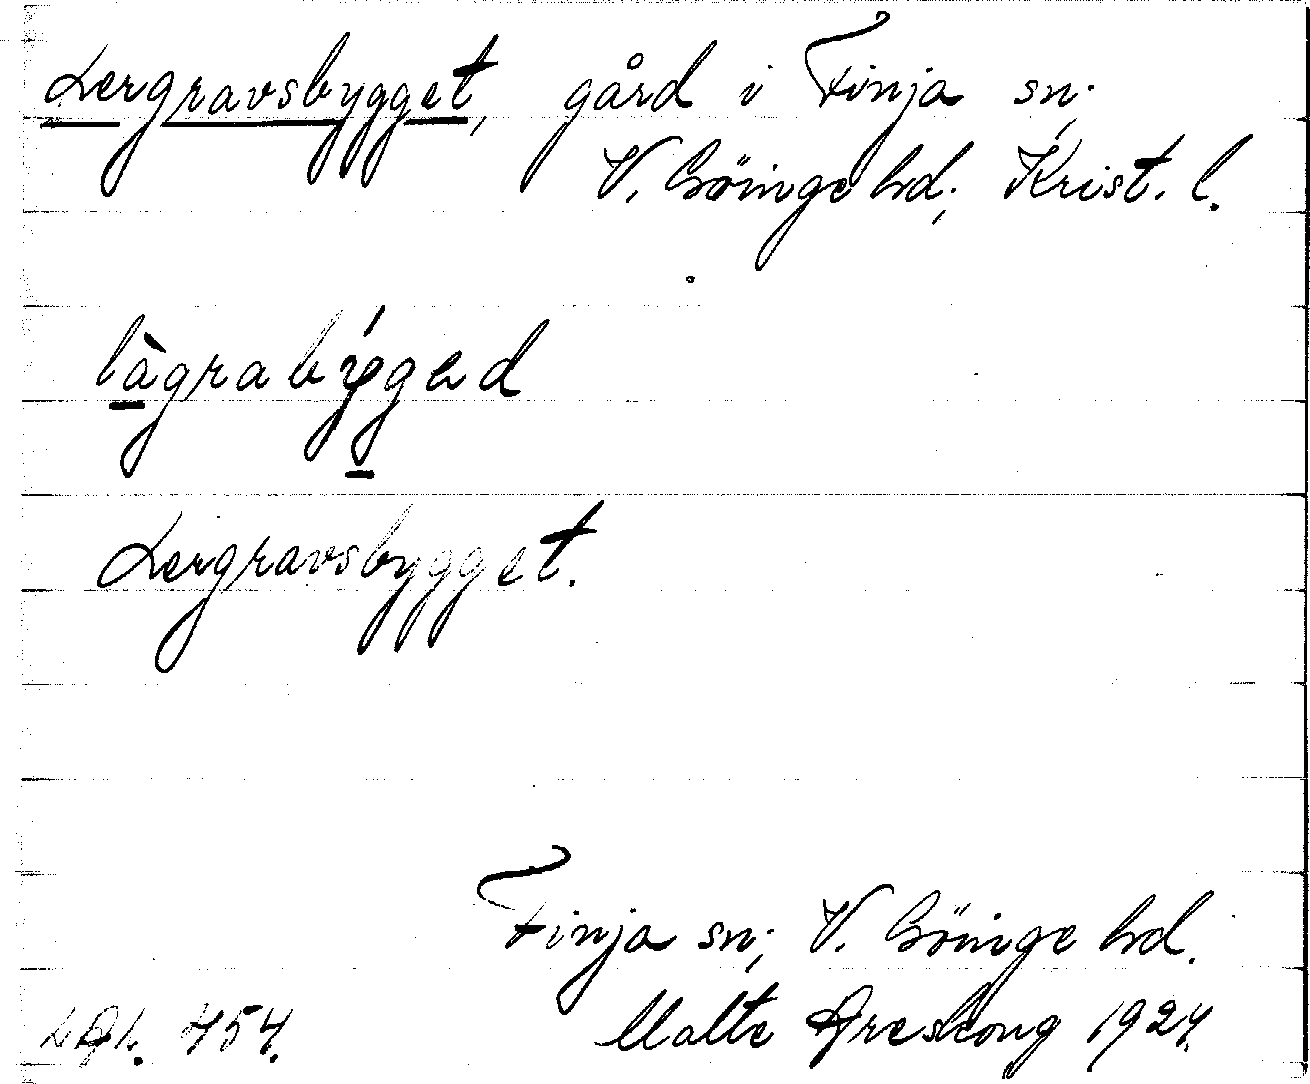 Lergravsbygget, gård i Finja sn;
V. Göinge hd; Krist. l.
làgrabýgəd
Lergravsbygget.
Finja sn; V. Göinge hd.
Malte Areskoug 1924.
LAL. 454.